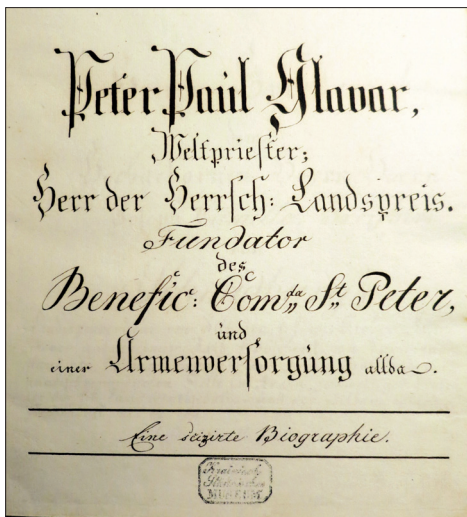 Peter Paul Glavar,
Weltpriester;
Herr der Herrsch: Landspreis.
Fundator
des
Benefic: Comda St Peter,
und
einer Armenversorgung allda.
Eine scizirte Biographie.
MUSEUM